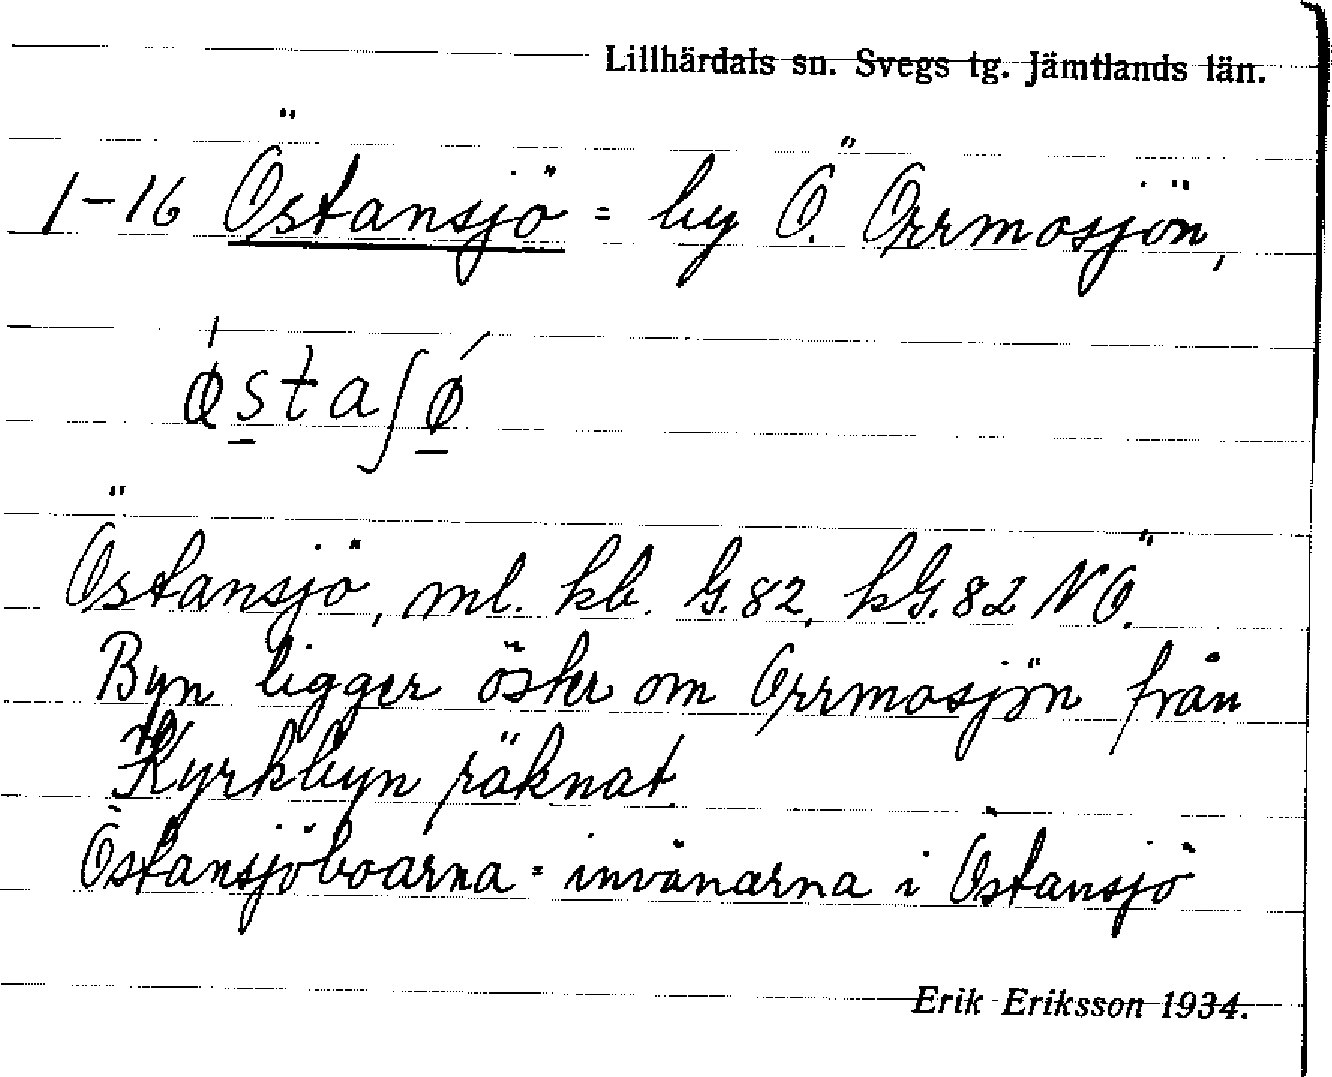 Lillhärdals sn. Svegs tg. Jämtlands län.
1-16 Östansjö = by Ö. Orrmosjön,
ǿstaʃǿ
Östansjö, ml. kb. G.82, kG.82 NÖ.
Byn ligger öster om Orrmosjön från
Kyrkbyn räknat
Östansjöboarna = invånarna i Östansjö
Erik Eriksson 1934.